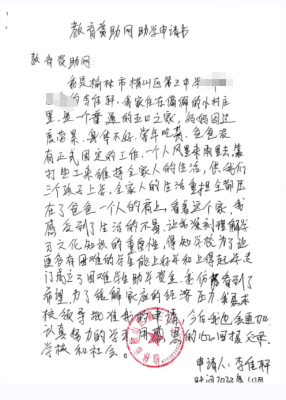 教育资助网助学申请书
教育资助网:
我是榆林市横山区第三中学
的李佳轩,我家住在偏僻的小村庄
里,是一个普通的五口之家,妈妈因过
度劳累,身体不好,常年吃药,爸爸没
有正式固定的工作,一个人风里来雨里去,靠
打些工来维持全家人的生活,供我们
三个孩子上学,全家人的生活重担全都压
在了爸爸一个人的肩上,看着这个家,我
感受到了生活的不易,让我深刻理解学
习文化知识的重要性,得知学校为了让
更多有困难的学生能上好学和上得起学,专
门成立了困难学生助学资金,我仿佛看到了
希望,为了缓解家庭的经济压力,我恳求
校领导批准我的申请,今后我也会更加
认真努力的学习,用感恩的心回报父母、
学校和社会。
申请人:李佳轩
时间2022年10月